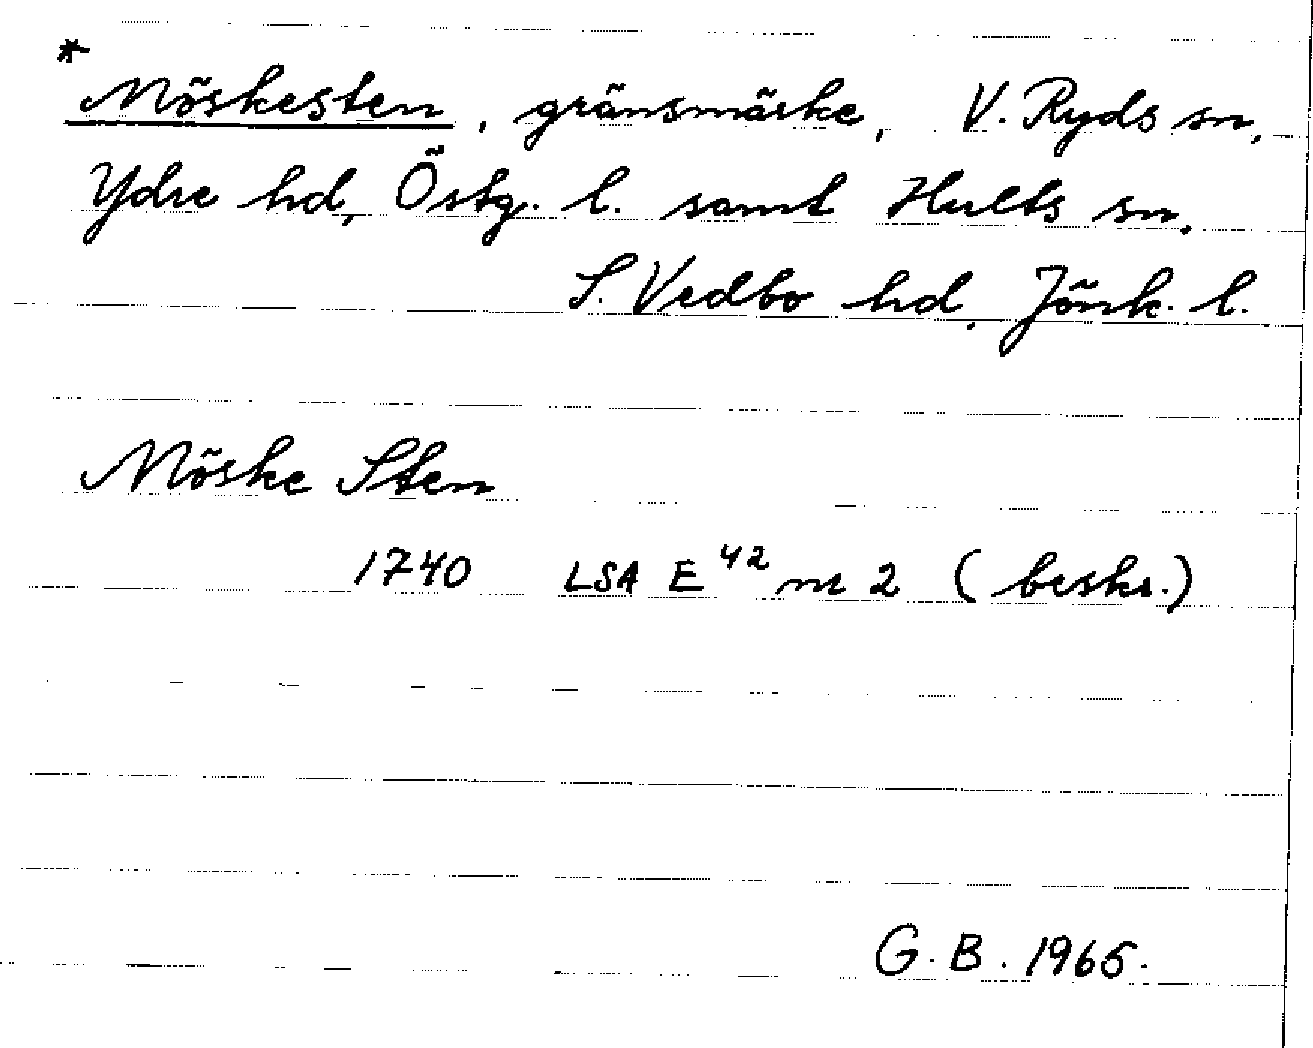 *
Möskesten, gränsmärke, V. Ryds sn,
Ydre hd, Östg. l. samt Hults sn,
S. Vedbo hd, Jönk. l.
Möske Sten
1740 LSA E 42 m 2 (beskr.)
G. B. 1965.